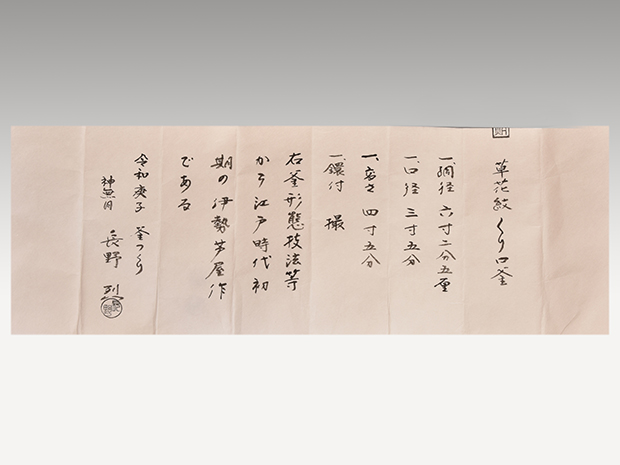 草花紋 くり口釜
一、胴径 六寸二分五厘
一、口径 三寸五分
一、高さ 四寸五分
一、鐶付 撮
右釜形態技法等
から江戸時代初
期の伊勢芦屋作
である
令和庚子 釜つくり
神無月 長野 烈